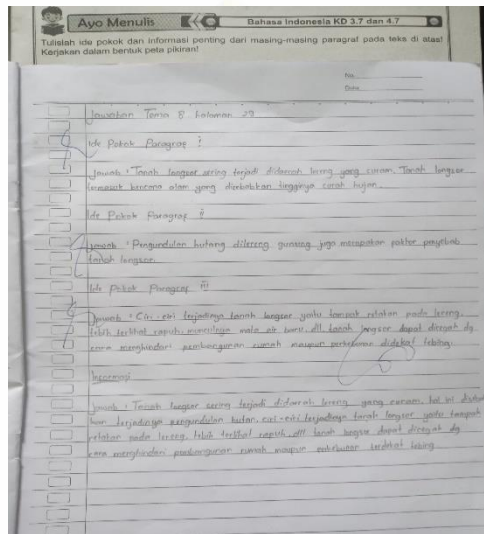 Ayo Menulis
Bahasa Indonesia KD 3.7 dan 4.7
Tulislah ide pokok dan informasi penting dari masing-masing paragraf pada teks di atas!
Kerjakan dalam bentuk peta pikiran!
No.
Date
Jawaban Tema 8 halaman 29
Ide Pokok Paragrap I
Jawab : Tanah langsor sering terjadi didaerah lereng yang curam. Tanah langsor
termasuk bencana alam yang disebabkan tingginya curah hujan.
Ide Pokok Paragrap II
Jawab : Pengundulan hutang dilereng gunung juga merupakan paktor penyebab
tanah langsor.
Ide Pokok Paragrap III
Jawab : Ciri-ciri terjadinya tanah langsor yaitu tampak retakan pada lereng,
tebih terlihat rapuh, munculnya mata air baru, dll. tanah langsor dapat dicegah dg
cara menghindari pembangunan rumah maupun perkebunan didekat tebing.
Informasi
Jawab : Tanah langsor sering terjadi didaerah lereng yang curam, hal ini
kan terjadinya pengundulan hutan. ciri-ciri terjadinya tanah langsor yaitu tampak
retakan pada lereng, tebih terlihat rapuh dll tanah langsor dapat dicegah dg
cara menghindari pembangunan rumah maupun perkebunan terdekat tebing